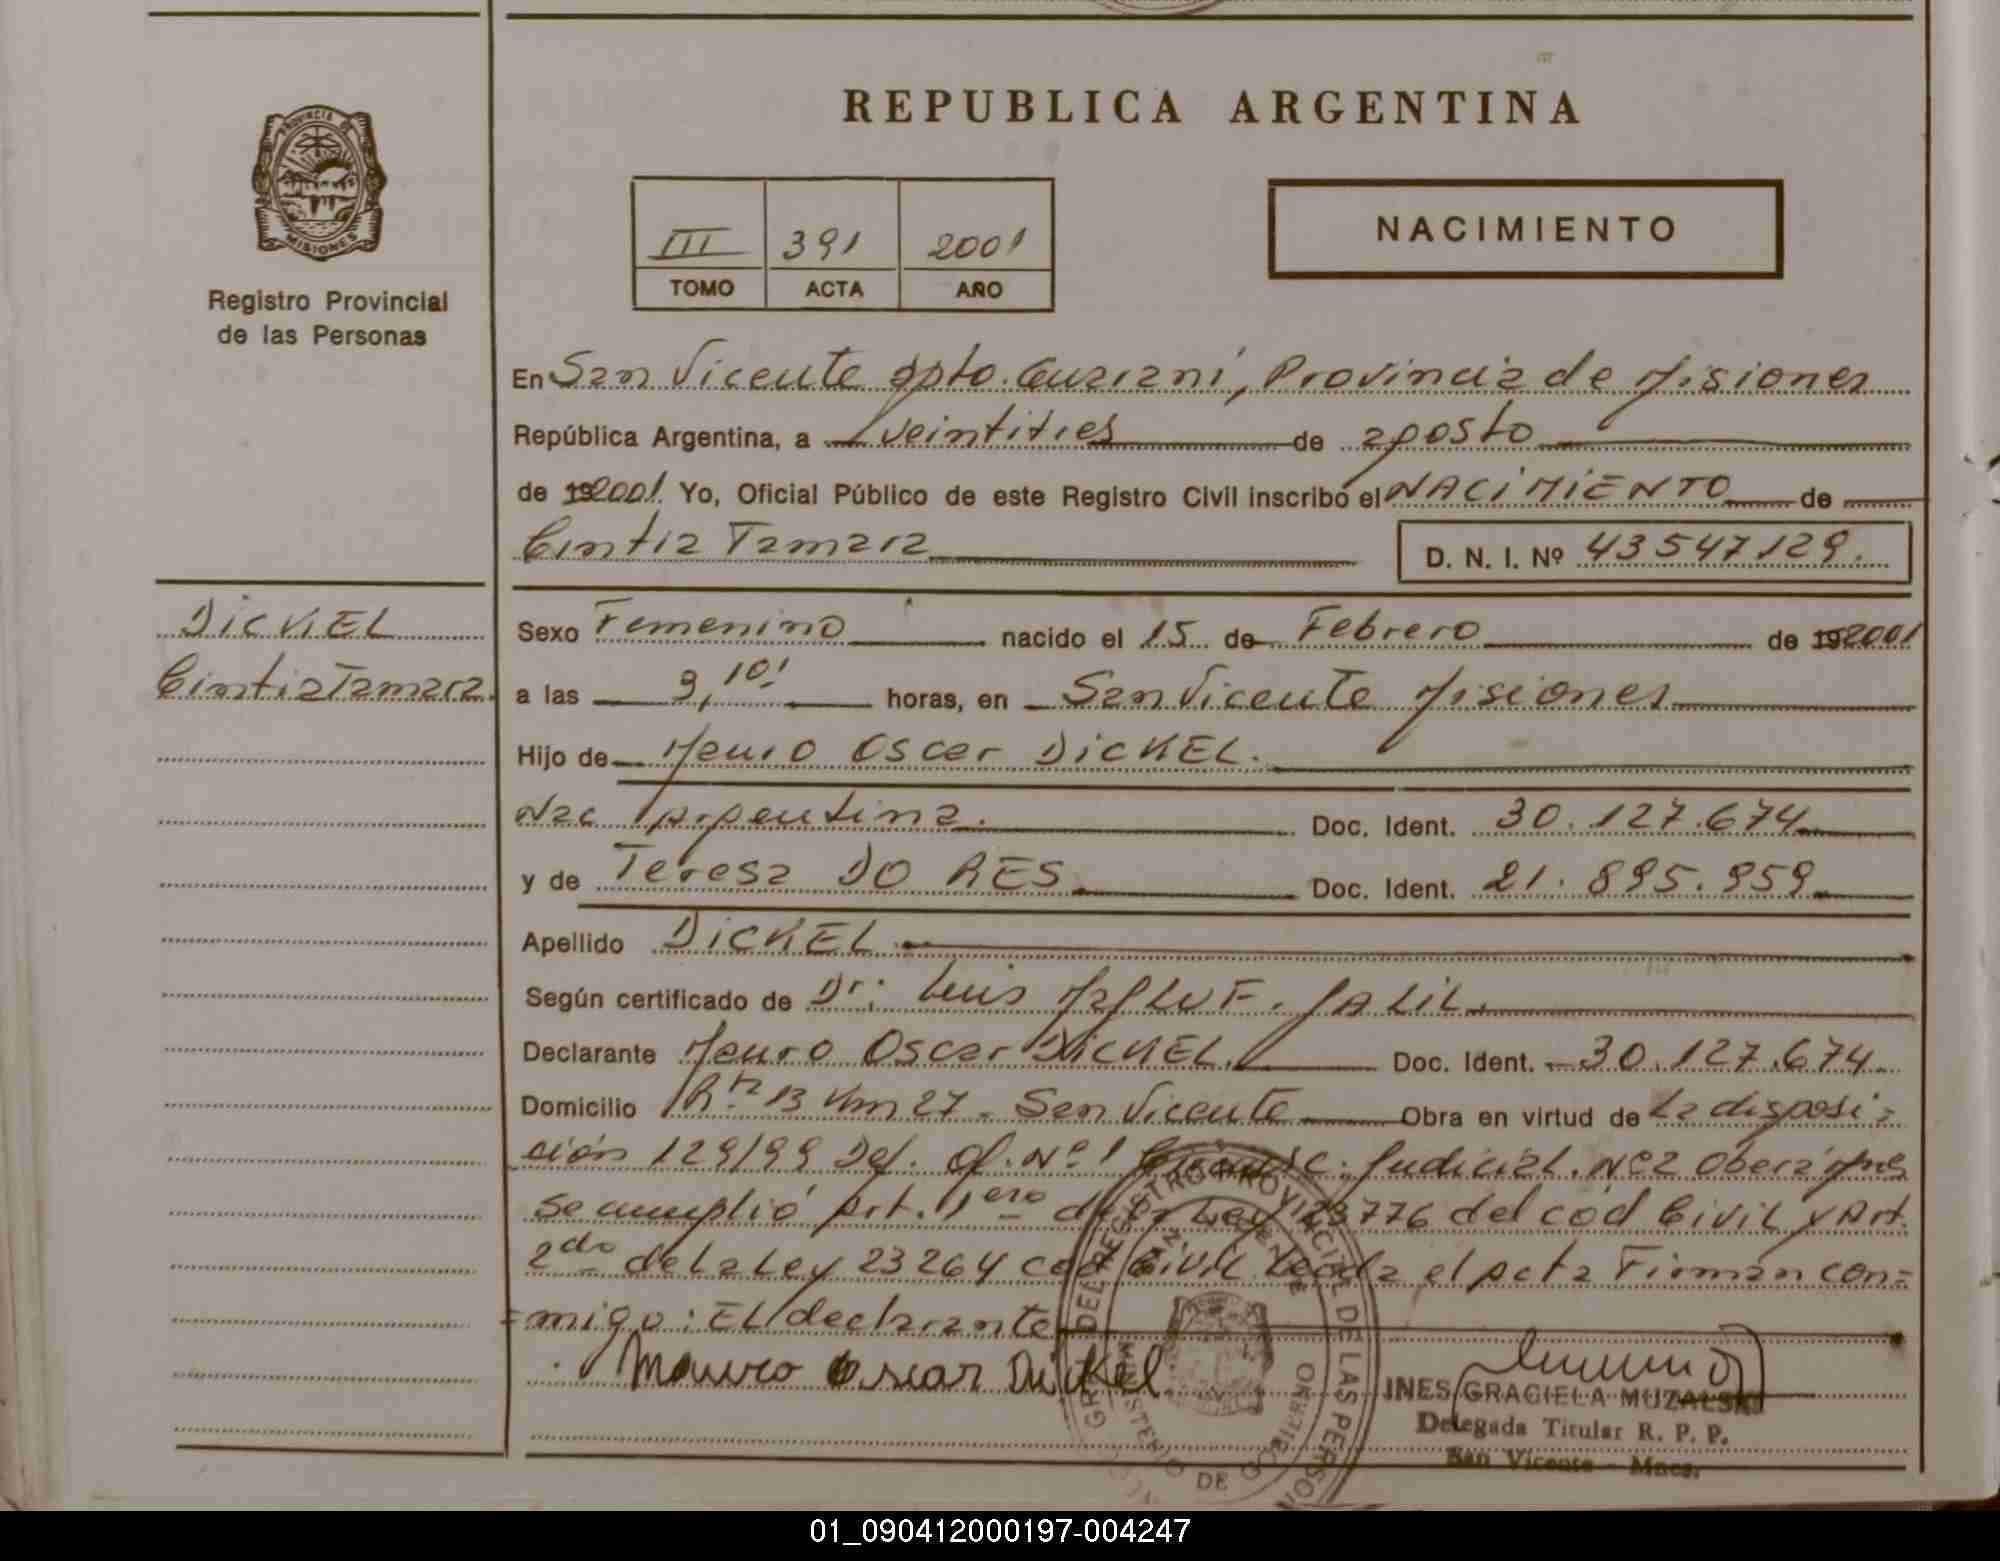 REPUBLICA ARGENTINA
PROVINCIA DE
MISIONES
Registro Provincial
de las Personas
III 391 2001
TOMO ACTA AÑO
NACIMIENTO
En San Vicente Dpto. Guarani, Provincia de Misiones
República Argentina, a veintitres de agosto
de 192001. Yo, Oficial Público de este Registro Civil inscribo el NACIMIENTO de
Cintia Tamara D. N. I. Nº 43547129.
DICKEL
Cintia Tamara.
Sexo Femenino nacido el 15 de Febrero de 192001
a las 9,10' horas, en San Vicente Misiones
Hijo de Mauro Oscar DICKEL.
Nac Argentina. Doc. Ident. 30.127.674
y de Teresa DO RES Doc. Ident. 21.895.959
Apellido DICKEL
Según certificado de Dr: Luis F. JALIL.
Declarante Mauro Oscar DICKEL. Doc. Ident. 30.127.674.
Domicilio Rta 13 Km 27 - San Vicente Obra en virtud de La disposi=
ción 129/99 Def. Of. Nº 1 Judicial. Nº2 Oberá
se cumplió Art. 1ero de la Ley 23776 del cod Civil y Art.
2do de la Ley 23264 cod Civil Leida el acta Firman con=
=migo: El declarante
Mauro Oscar Dickel
INES GRACIELA MUZALSKI
Delegada Titular R. P. P.
San Vicente - Mnes.
DEL REGISTRO PROVINCIAL DE LAS PERSON
SAN VICENTE
MINISTERIO DE GOBIERNO
01_090412000197-004247